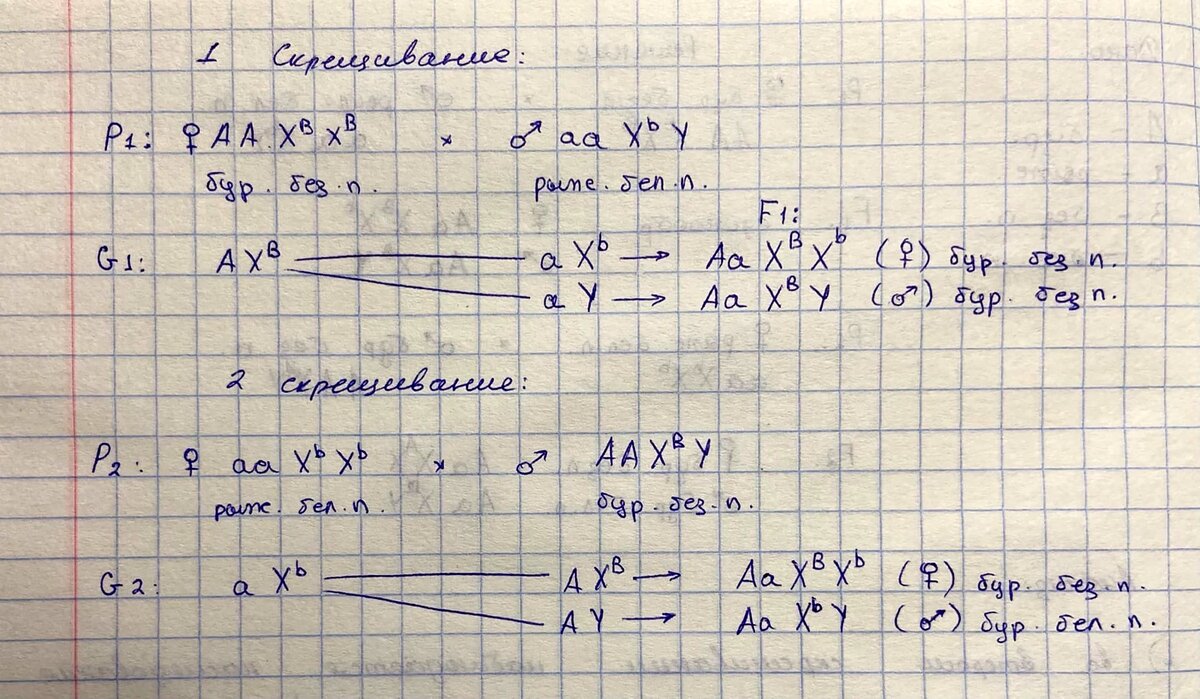 1 Скрещивание:
P1: ♀ AA X^B X^B × ♂ aa X^b Y
бур. без. п. рыж. бел. п.
F1:
G1: A X^B a X^b → Aa X^B X^b (♀) бур. без. п.
a Y → Aa X^B Y (♂) бур. без п.
2 скрещивание:
P2: ♀ aa X^b X^b × ♂ AA X^B Y
рыж. бел. п. бур. без. п.
G2: a X^b A X^B → Aa X^B X^b (♀) бур. без. п.
A Y → Aa X^b Y (♂) бур. бел. п.